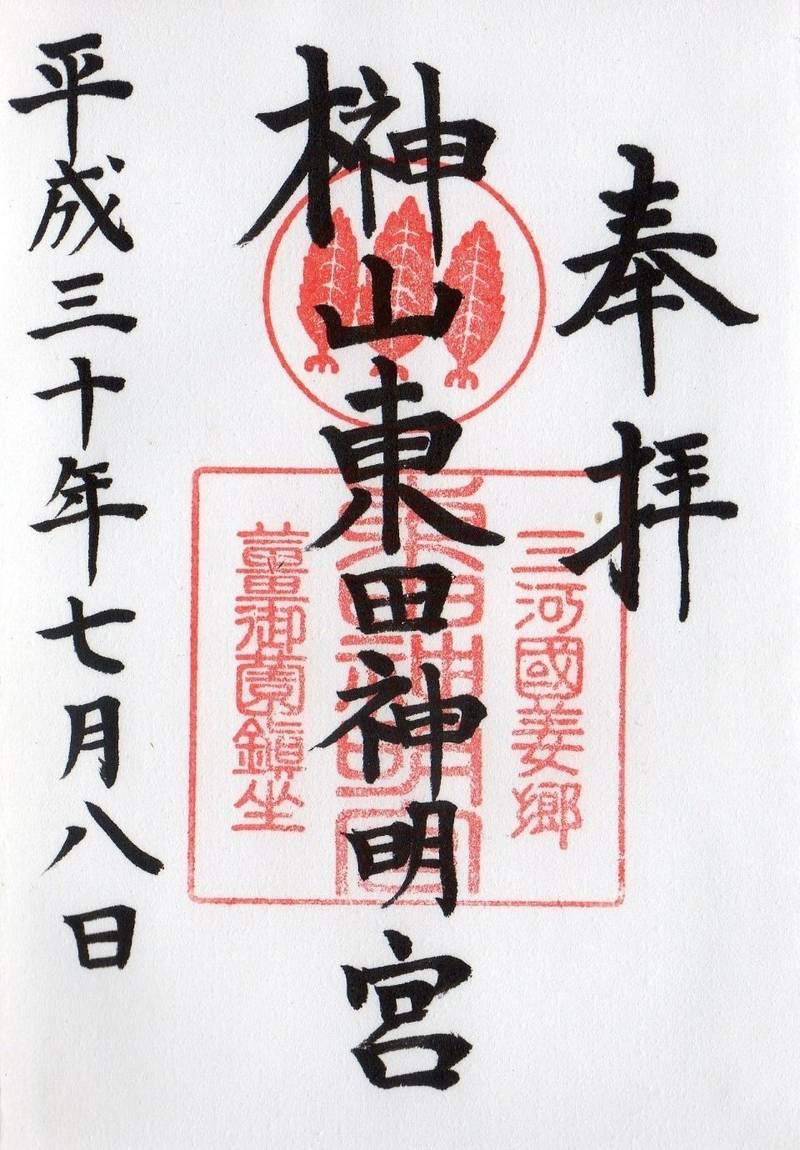 奉拝
三河國姜郷
榊山東田神明宮
東田神明宮
薑御薗鎮坐
平成三十年七月八日